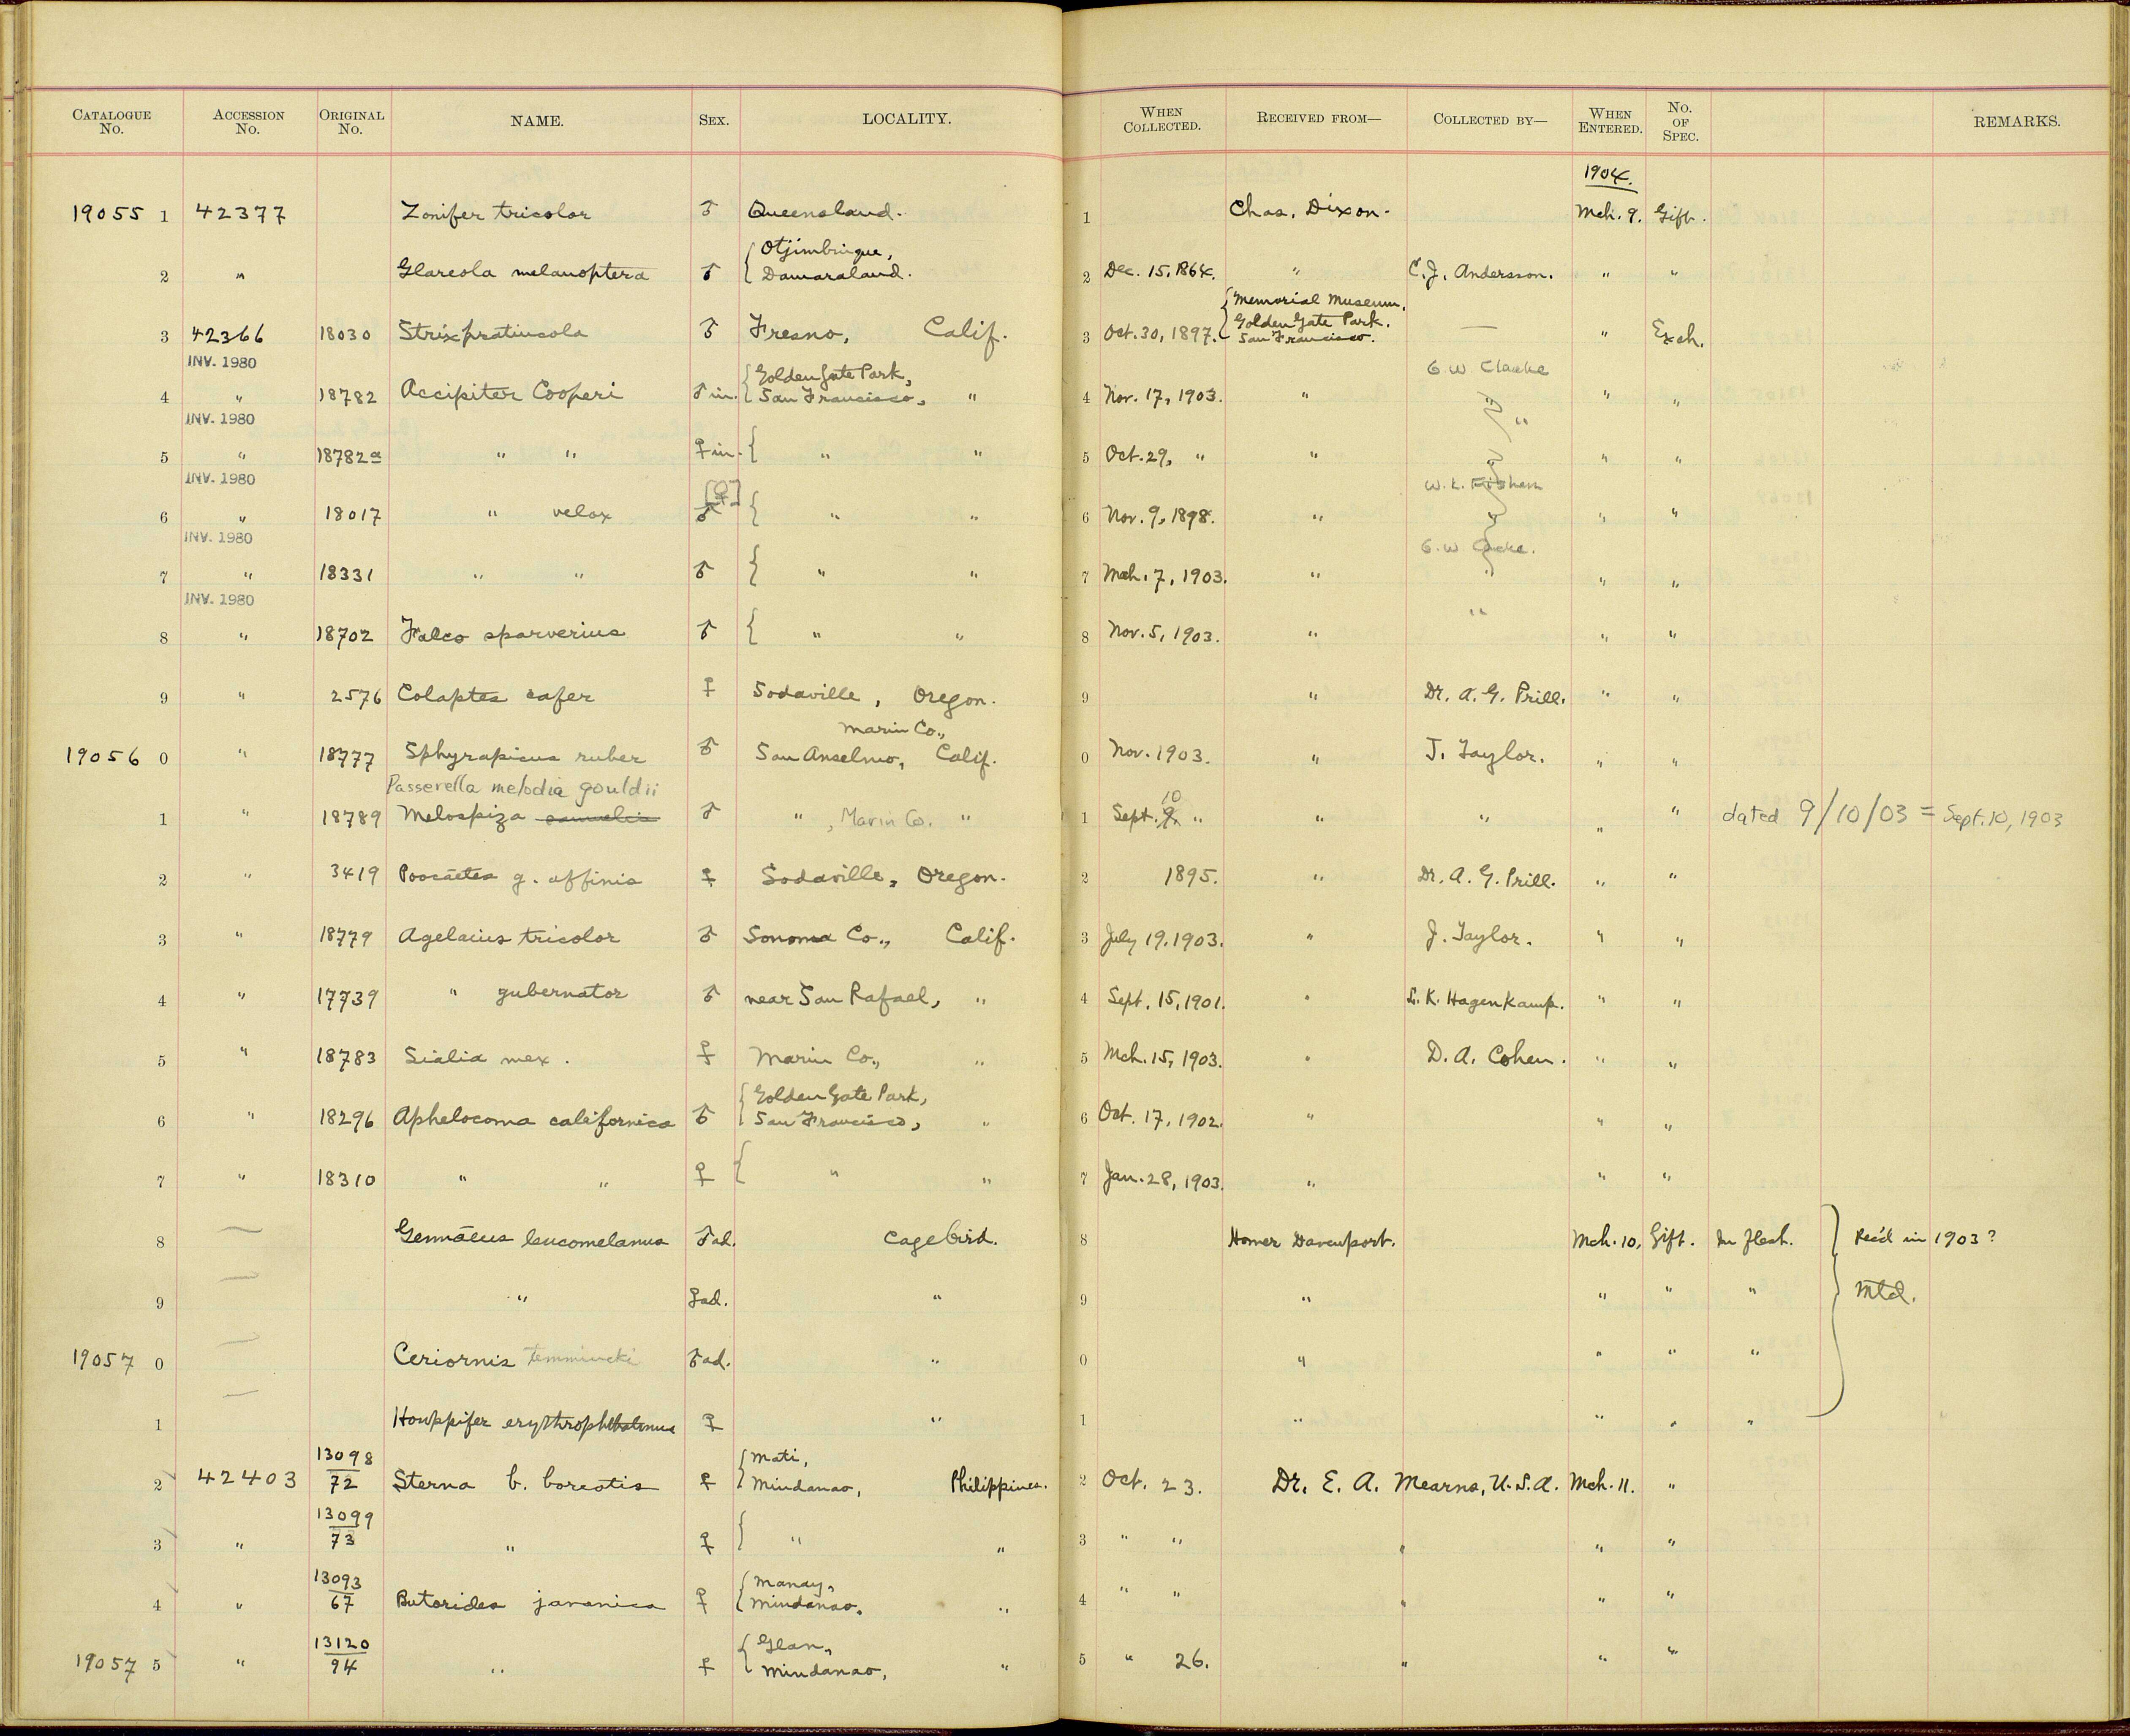 CATALOGUE No. ACCESSION No. ORIGINAL No. NAME. SEX. LOCALITY. WHEN COLLECTED. RECEIVED FROM— COLLECTED BY— WHEN ENTERED. No. OF SPEC. REMARKS.
1904.
19055 1 42377 Zonifer tricolor ♂ Queensland. 1 Chas. Dixon. Mch. 9. Gift.
2 " Glareola melanoptera ♂ { Otjimbinque, Damaraland. 2 Dec. 15, 1864. " C. J. Andersson. " "
3 42366 18030 Strix pratincola ♂ Fresno, Calif. 3 Oct. 30, 1897. { Memorial Museum, Golden Gate Park. San Francisco. — " Exch.
INV. 1980
4 " 18782 Accipiter Cooperi ♂ im. { Golden Gate Park, San Francisco, " 4 Nov. 17, 1903. " G W Clarke " "
INV. 1980
5 " 18782a " " ♀ im. { " " 5 Oct. 29, " " " " "
INV. 1980
6 " 18017 " velox ♂ [♀] { " " 6 Nov. 9, 1898. " W. L. Fisher " "
INV. 1980
7 " 18331 " " ♂ { " " 7 Mch. 7, 1903. " G. W. " "
INV. 1980
8 " 18702 Falco sparverius ♂ { " " 8 Nov. 5, 1903. " " " "
9 " 2576 Colaptes cafer ♀ Sodaville, Oregon. 9 " Dr. A. G. Prill. " "
19056 0 " 18777 Sphyrapicus ruber ♂ San Anselmo, Marin Co., Calif. 0 Nov. 1903. " J. Taylor. " "
Passerella melodia gouldii
1 " 18789 Melospiza samuelis ♂ " , Marin Co. " 1 Sept. 9. 10 " " " " " dated 9/10/03 = Sept. 10, 1903
2 " 3419 Poocaetes g. affinis ♀ Sodaville, Oregon. 2 1895. " Dr. A. G. Prill. " "
3 " 18779 Agelaius tricolor ♂ Sonoma Co., Calif. 3 July 19, 1903. " J. Taylor. " "
4 " 17739 " gubernator ♂ near San Rafael, " 4 Sept. 15, 1901. " S. K. Hagenkamp. " "
5 " 18783 Sialia mex. ♀ Marin Co., " 5 Mch. 15, 1903. " D. A. Cohen. " "
6 " 18296 Aphelocoma californica ♂ { Golden Gate Park, San Francisco, " 6 Oct. 17, 1902. " " "
7 " 18310 " " ♀ { " " 7 Jan. 28, 1903. " " "
8 — Gennæus leucomelanus ♂ ad. Cage bird. 8 Homer Davenport. Mch. 10, Gift. In flesh. } Rec'd in 1903?
9 — " ♀ ad. " 9 " " " " Mtd.
19057 0 — Ceriornis temmincki ♂ ad. " 0 " " " "
1 — Houppifer erythrophthalmus ♀ " 1 " " " "
2 42403 13098/72 Sterna b. boreotis ♀ { Mati, Mindanao, Philippines. 2 Oct. 23. Dr. E. A. Mearns, U.S.A. Mch. 11. "
3 " 13099/73 " ♀ { " " 3 " " " " "
4 " 13093/67 Butorides javanica ♀ { Manay, Mindanao, " 4 " " " " "
19057 5 " 13120/94 " ♀ { Glan, Mindanao, " 5 " 26. " " "